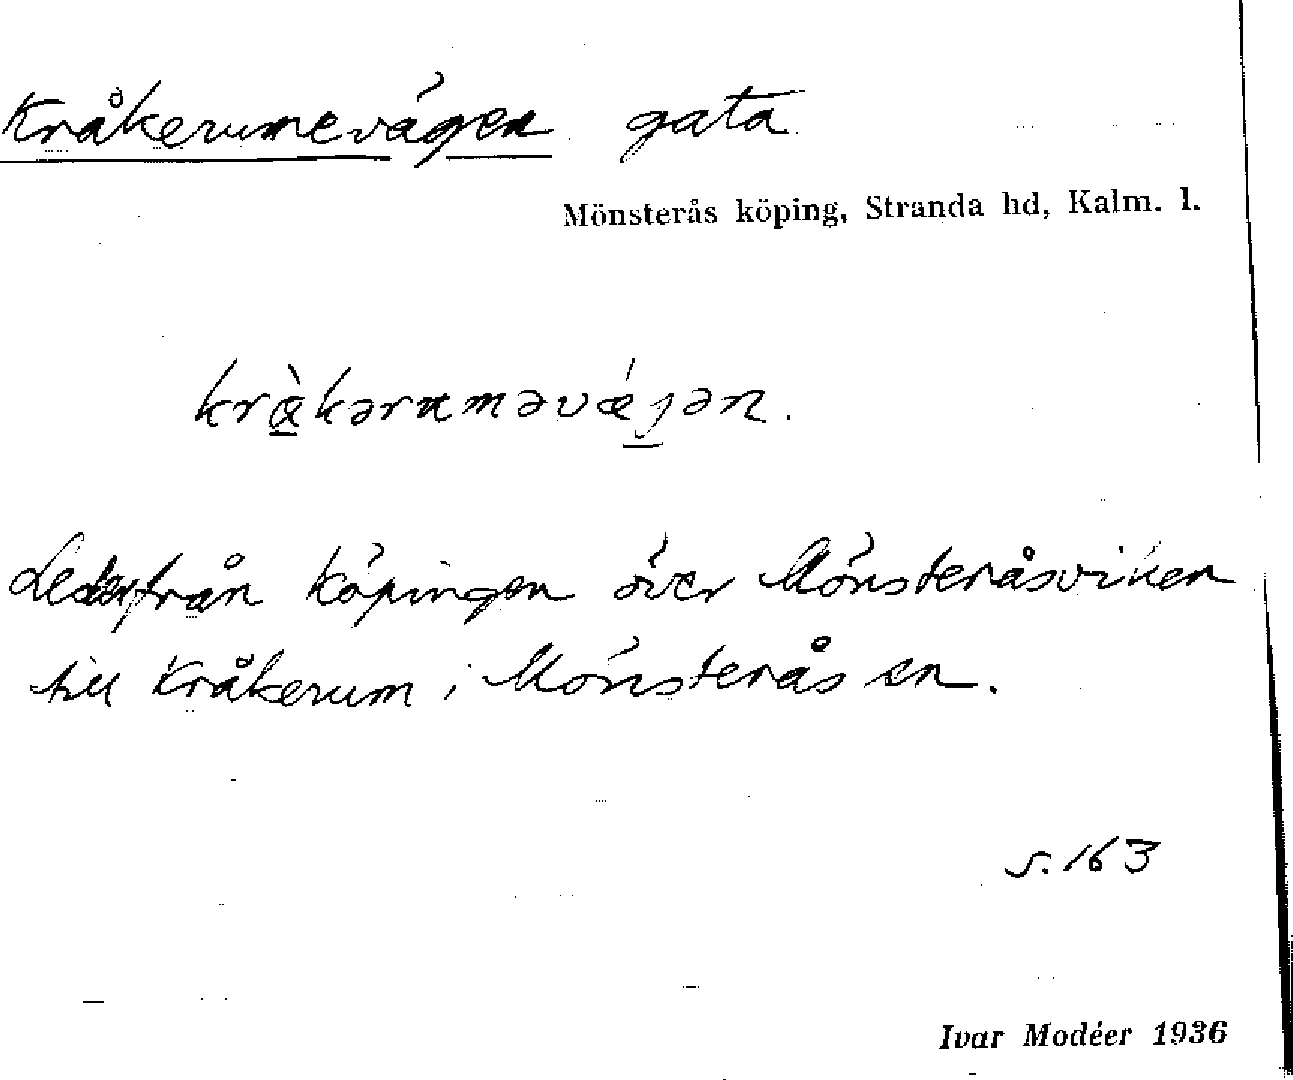 Kråkerumevägen gata
Mönsterås köping, Stranda hd, Kalm. l.
kræ̀kərumǝvǽjən.
Leder från köpingen över Mönsteråsviken
till Kråkerum i Mönsterås sn.
s. 163
Ivar Modéer 1936